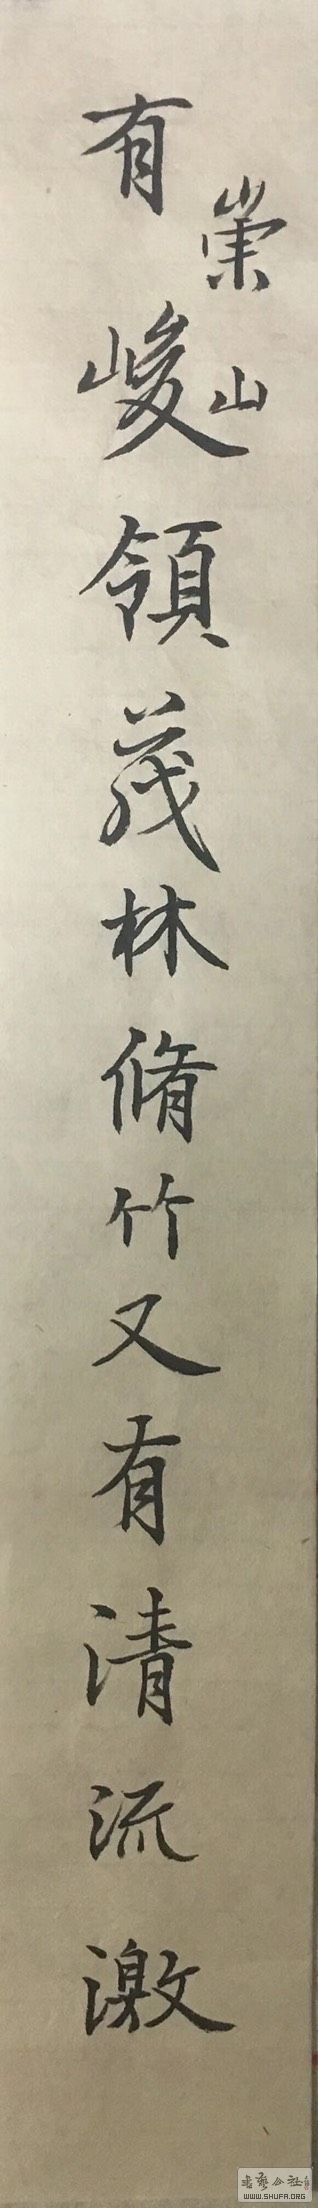 有崇山峻領茂林脩竹又有清流激
書藝公社
WWW.SHUFA.ORG